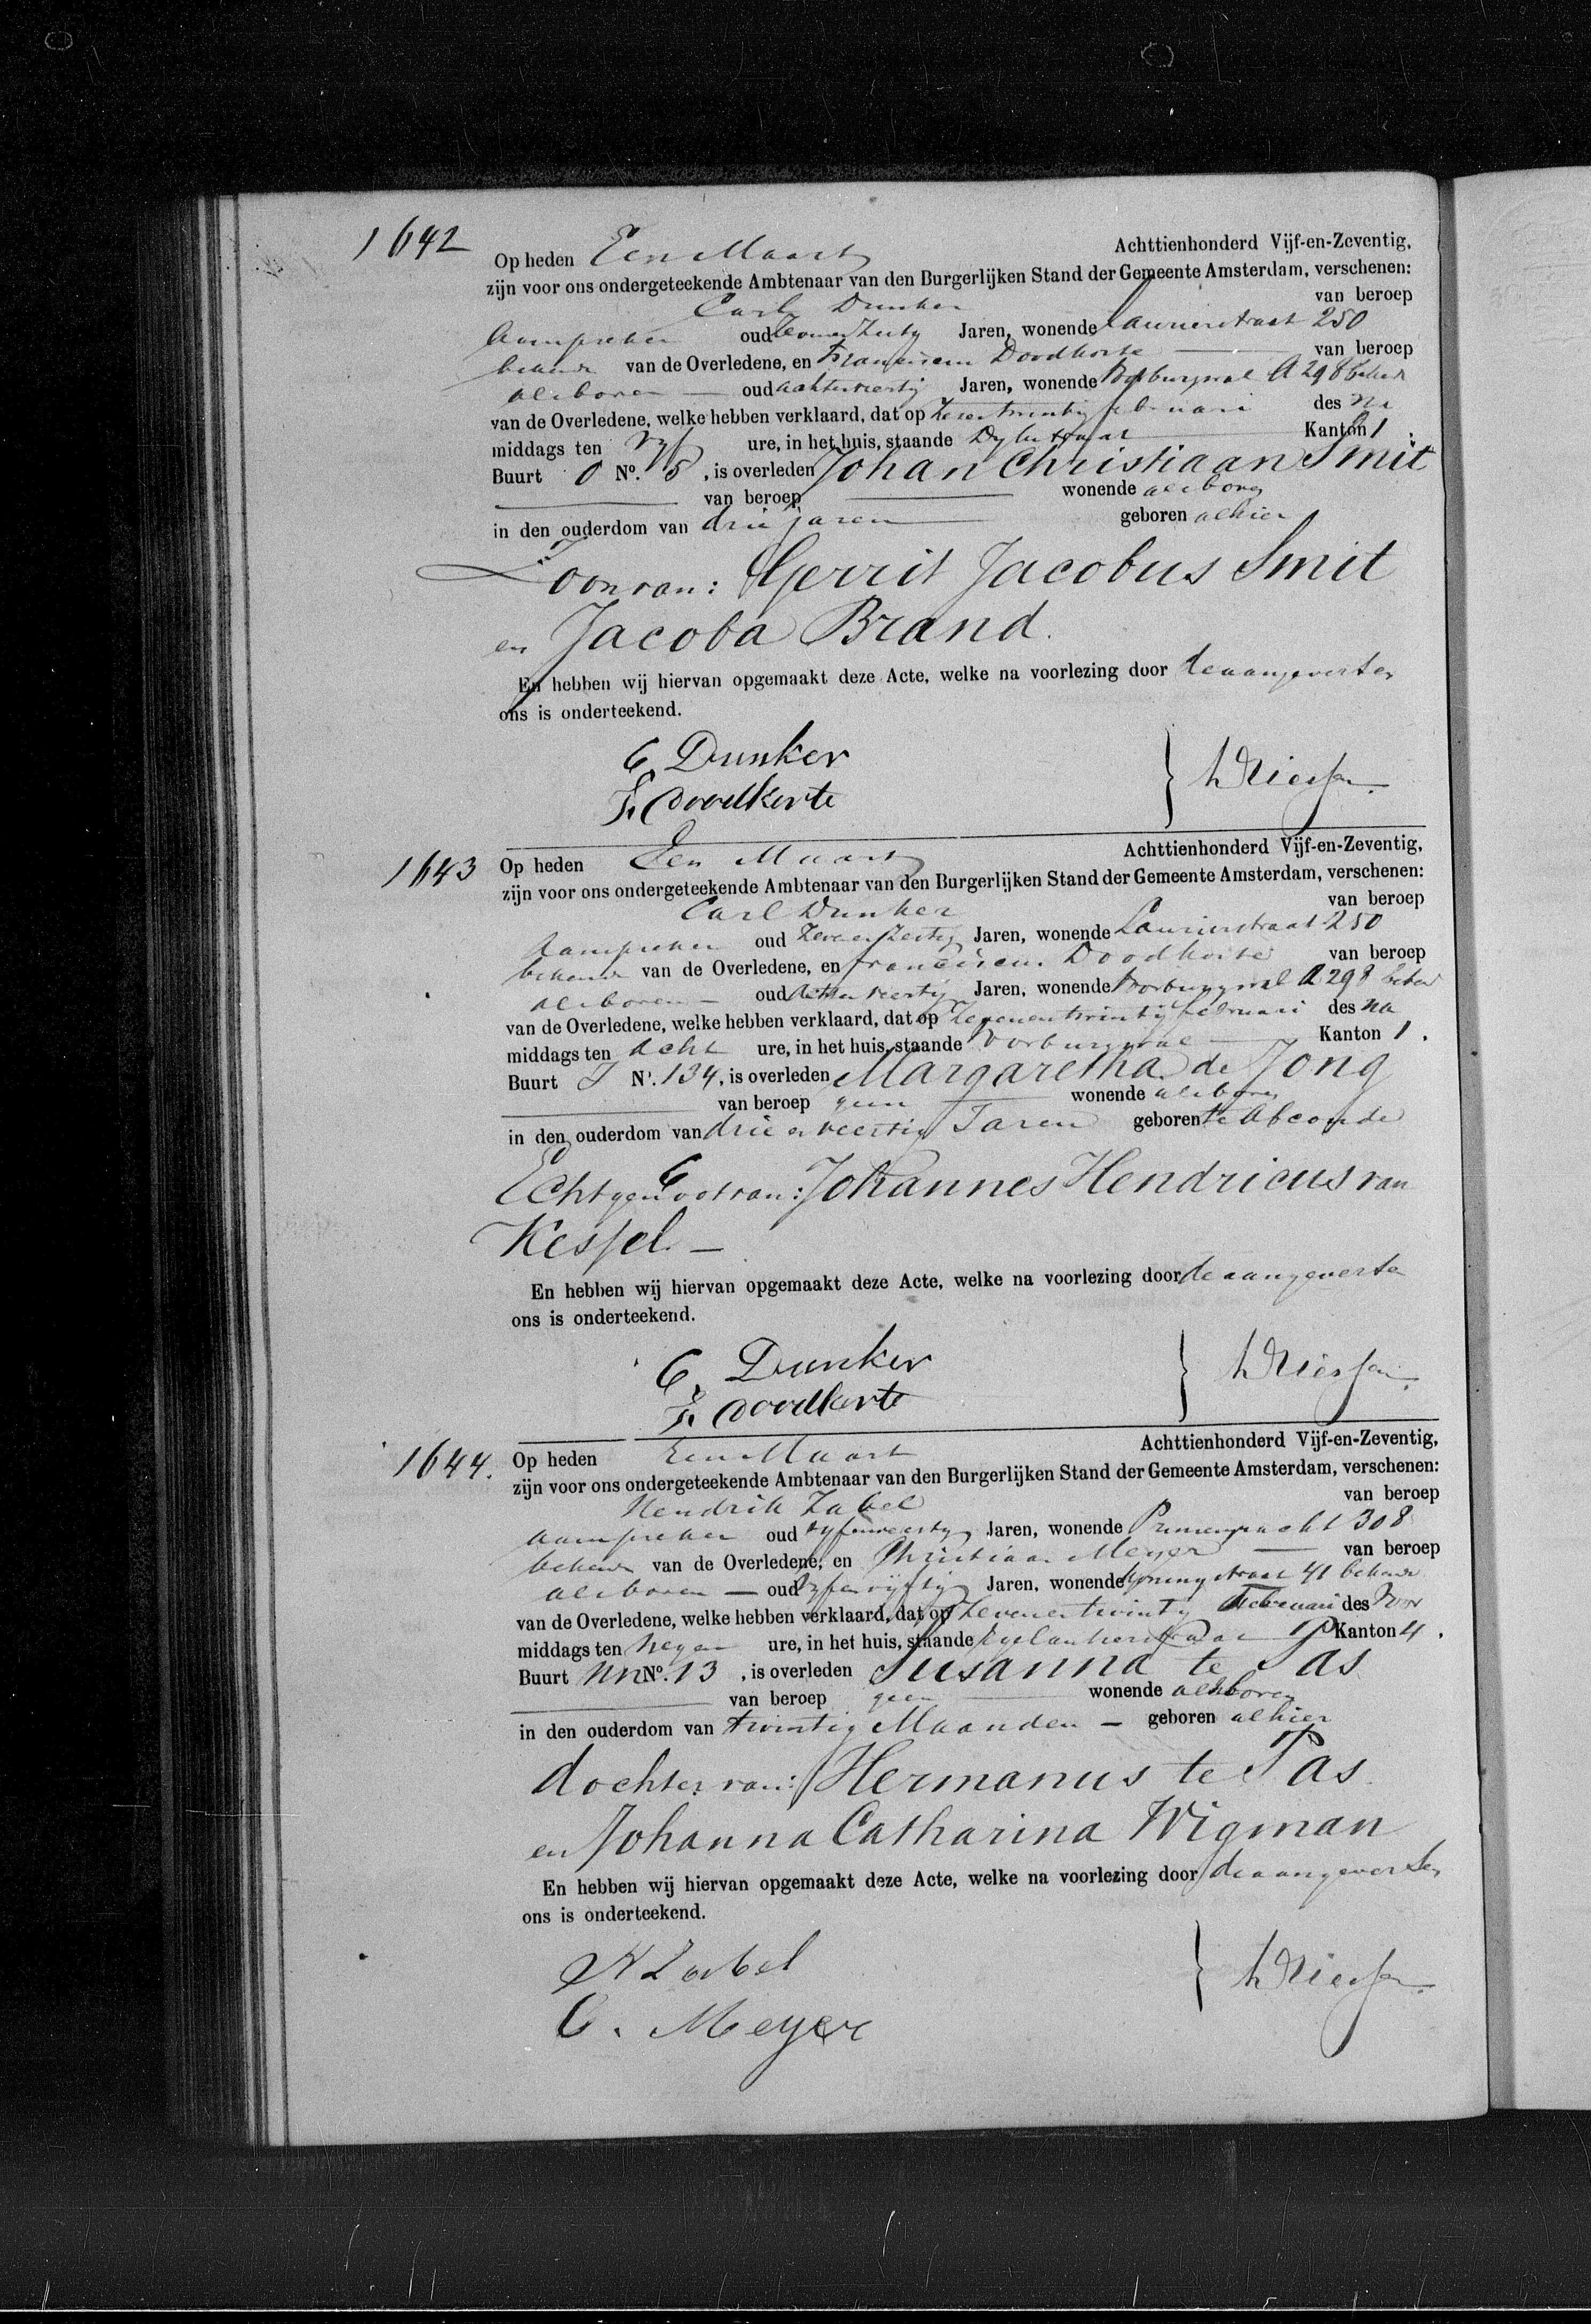 1642
Op heden Een Maart Achttienhonderd Vijf-en-Zeventig,
zijn voor ons ondergeteekende Ambtenaar van den Burgerlijken Stand der Gemeente Amsterdam, verschenen:
Carl Dunker van beroep
Aanspreker oud Zevenenzestig Jaren, wonende Laurierstraat 250
bekende van de Overledene, en Franciscus Doodkorte van beroep
als boven oud achtenveertig Jaren, wonende Voorburgwal A 298 bekend
van de Overledene, welke hebben verklaard, dat op Zevenentwintig februari des na
middags ten vijf ure, in het huis, staande Kanton 1.
Buurt O No. 5, is overleden Johan Christiaan Smit
van beroep wonende als boven
in den ouderdom van drie jaren geboren alhier
Zoon van: Gerrit Jacobus Smit
en Jacoba Brand.
En hebben wij hiervan opgemaakt deze Acte, welke na voorlezing door de aangevers en
ons is onderteekend.
C. Dunker
F. Doodkorte
1643
Op heden Een Maart Achttienhonderd Vijf-en-Zeventig,
zijn voor ons ondergeteekende Ambtenaar van den Burgerlijken Stand der Gemeente Amsterdam, verschenen:
Carl Dunker van beroep
Aanspreker oud Zevenenzestig Jaren, wonende Laurierstraat 250
bekende van de Overledene, en Franciscus Doodkorte van beroep
als boven oud achtenveertig Jaren, wonende Voorburgwal A 298 bekend
van de Overledene, welke hebben verklaard, dat op Zevenentwintig februari des na
middags ten Acht ure, in het huis, staande Voorburgwal Kanton 1.
Buurt J No. 134, is overleden Margaretha de Jong
van beroep geen wonende als boven
in den ouderdom van drie en veertig Jaren geboren te Abcoude
Echtgenoot van: Johannes Hendricus van
Kessel.
En hebben wij hiervan opgemaakt deze Acte, welke na voorlezing door de aangevers en
ons is onderteekend.
C. Dunker
F. Doodkorte
1644.
Op heden Een Maart Achttienhonderd Vijf-en-Zeventig,
zijn voor ons ondergeteekende Ambtenaar van den Burgerlijken Stand der Gemeente Amsterdam, verschenen:
Hendrik Zabel van beroep
Aanspreker oud vijfenveertig Jaren, wonende Prinsengracht 308
bekende van de Overledene, en Christiaan Meyer van beroep
als boven oud vijfenvijftig Jaren, wonende Koningstraat 41 bekende
van de Overledene, welke hebben verklaard, dat op Zevenentwintig Februari des Voor
middags ten negen ure, in het huis, staande Kanton 4.
Buurt NN No. 13, is overleden Susanna te Pas
van beroep geen wonende als boven
in den ouderdom van twintig Maanden geboren alhier
dochter van: Hermanus te Pas
en Johanna Catharina Wigman
En hebben wij hiervan opgemaakt deze Acte, welke na voorlezing door de aangevers en
ons is onderteekend.
H Zabel
C. Meyer